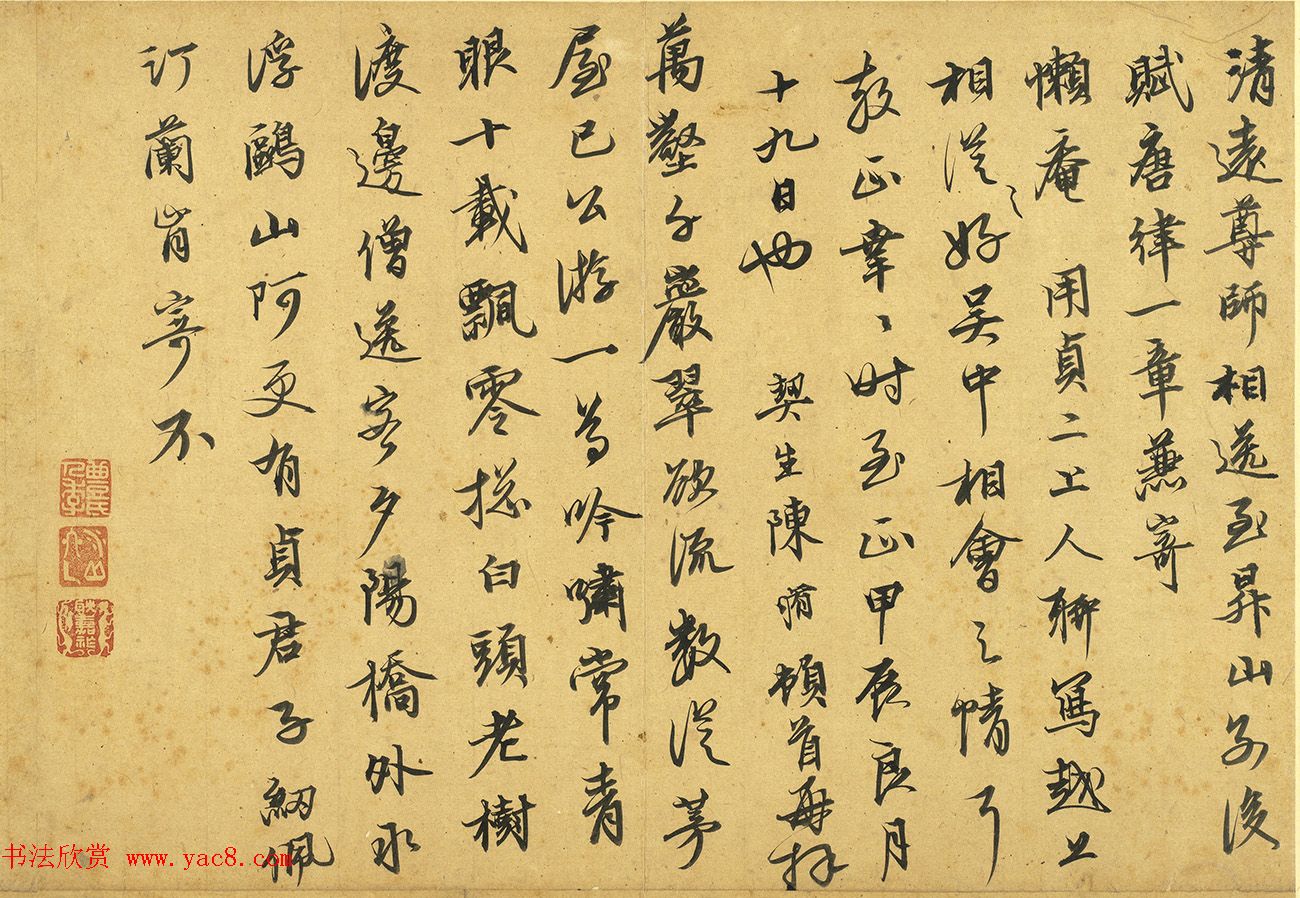 清遠尊師相送至昇山別後
賦唐律一章兼寄
懶庵用貞二上人聊寫越上
相從之好吳中相會之情了
教正幸〻時至正甲辰良月
十九日也 契生陳脩頓首再拜
萬壑千巖翠欲流數從茅
屋已公游一為吟嘯常青
眼十載飄零摠白頭老樹
渡邊僧送客夕陽橋外水
浮鷗山阿更有貞君子紉佩
汀蘭肯寄不
书法欣赏 www.yac8.com